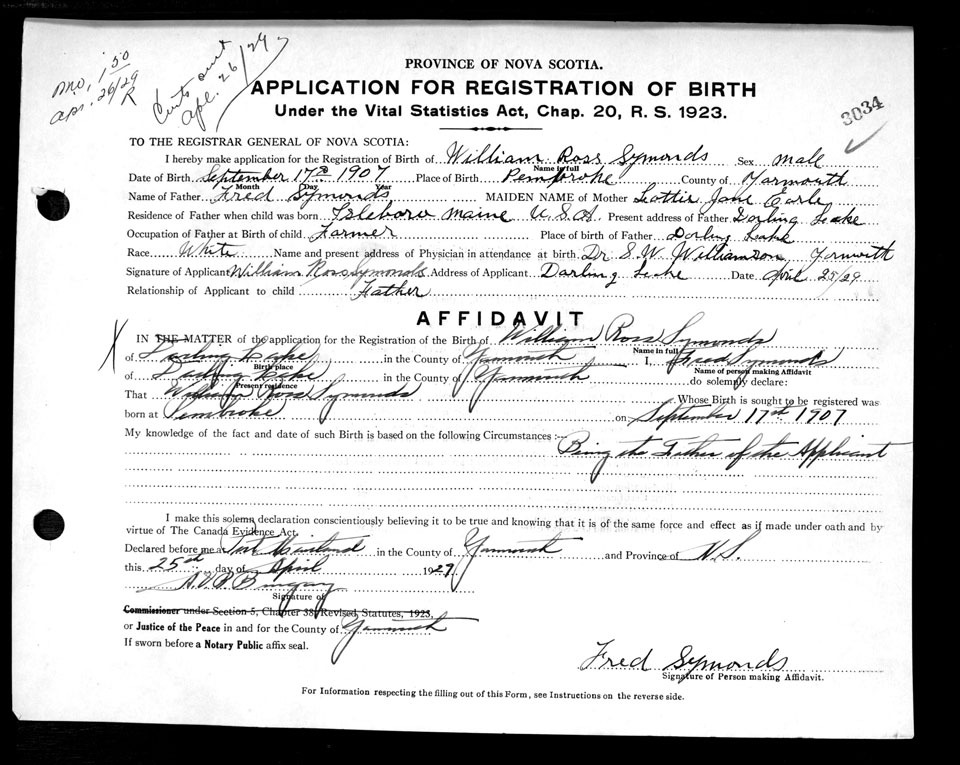 mo, 1 50
apr. 26/29
R
Certs sent
Apl. 26/29
PROVINCE OF NOVA SCOTIA.
APPLICATION FOR REGISTRATION OF BIRTH
Under the Vital Statistics Act, Chap. 20, R. S. 1923.
3034
TO THE REGISTRAR GENERAL OF NOVA SCOTIA:
I hereby make application for the Registration of Birth of William Ross Symonds Sex male
Name in full
Date of Birth September 17 1907 Place of Birth Pembroke County of Yarmouth
Month Day Year
Name of Father Fred Symonds MAIDEN NAME of Mother Lottie Jane Earle
Residence of Father when child was born Isleboro Maine U.S.A. Present address of Father Darling Lake
Occupation of Father at Birth of child Farmer Place of birth of Father Darling Lake
Race White Name and present address of Physician in attendance at birth Dr S. W. Williamson, Yarmouth
Signature of Applicant William Ross Symonds Address of Applicant Darling Lake Date April 25/29
Relationship of Applicant to child Father
AFFIDAVIT
IN THE MATTER of the application for the Registration of the Birth of William Ross Symonds
Name in full
of Darling Lake in the County of Yarmouth I, Fred Symonds
Birth place Name of person making Affidavit
of Darling Lake in the County of Yarmouth do solemnly declare:
Present residence
That William Ross Symonds Whose Birth is sought to be registered was
born at Pembroke on September 17 1907
My knowledge of the fact and date of such Birth is based on the following Circumstances :-
Being the Father of the Applicant
I make this solemn declaration conscientiously believing it to be true and knowing that it is of the same force and effect as if made under oath and by
virtue of The Canada Evidence Act.
Declared before me at Port Maitland in the County of Yarmouth and Province of N.S.
this 25 day of April 1929
Signature of
Commissioner under Section 5, Chapter 38, Revised Statutes, 1923,
or Justice of the Peace in and for the County of Yarmouth
If sworn before a Notary Public affix seal.
Fred Symonds
Signature of Person making Affidavit.
For Information respecting the filling out of this Form, see Instructions on the reverse side.